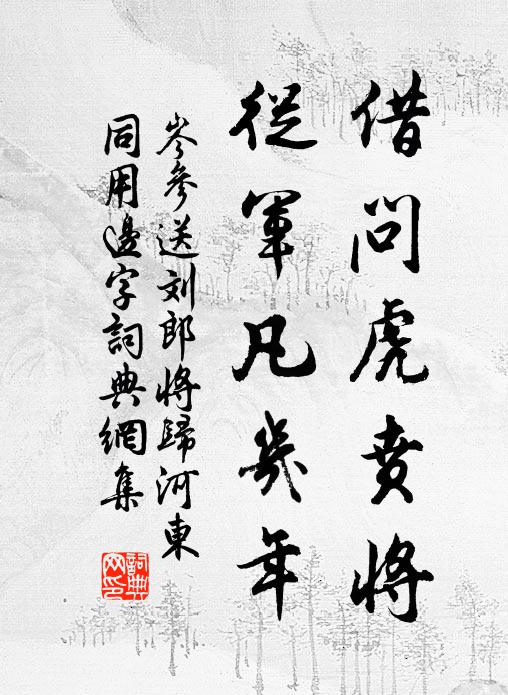 借問虎賁將
從軍凡幾年
岑參送刘郎將歸河東
同用邊字詞典網集
詞典网印